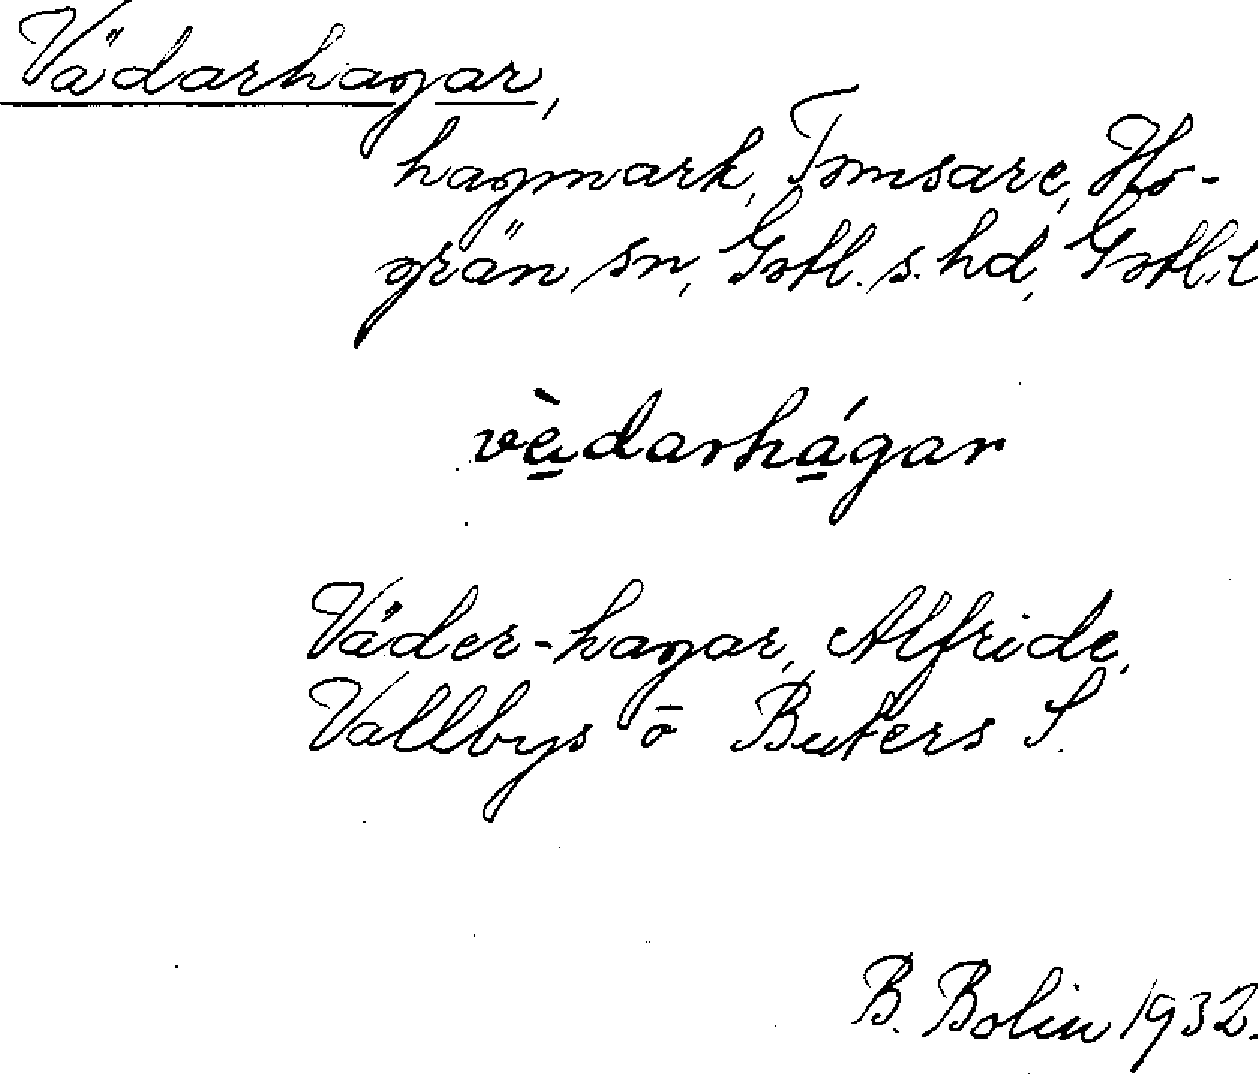 Vädarhagar,
hagmark, Tomsare, Ho-
grän sn, Gotl. s. hd, Gotl. l
vè̱darhá̱gar
Väder-hagar, Alfride,
Vallbys o Buters S.
B. Bolin 1932.